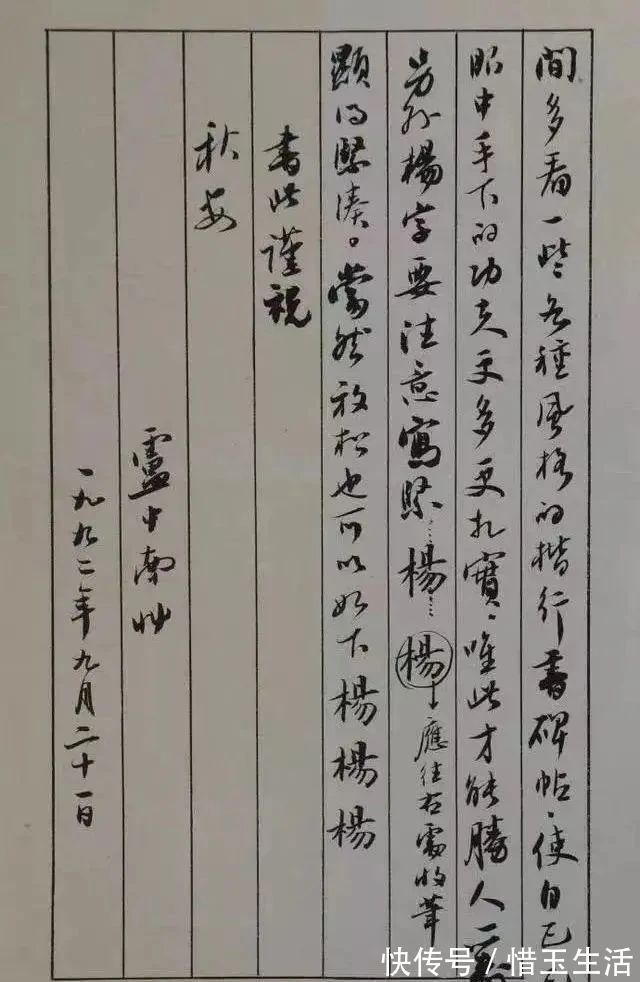 間多看一些各種風格的楷行書碑帖、使自己
眼中手下的功夫更多更扎實、唯此才能勝人一籌
另外楊字要注意寫緊……楊……楊 應往右處收筆
顯得緊湊。當然放松也可以如下楊楊楊
書此謹祝
秋安
盧中南
一九九二年九月二十一日
快传号/惜玉生活